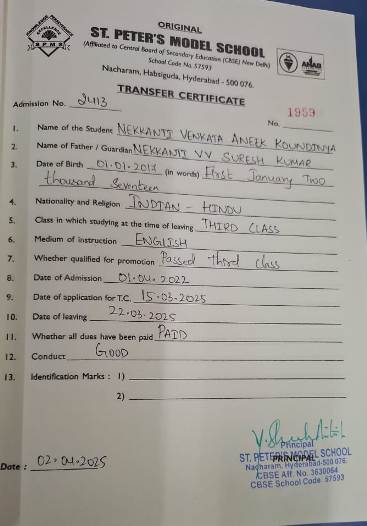 ORIGINAL
ST. PETER'S MODEL SCHOOL
(Affiliated to Central Board of Secondary Education (CBSE) New Delhi)
School Code No. 57593
Nacharam, Habsiguda, Hyderabad - 500 076.
S P M S
TRANSFER CERTIFICATE
Admission No. 2413
No. 1959
1. Name of the Student NEKKANTI VENKATA ANEEK KOUNDINYA
2. Name of Father / Guardian NEKKANTI VV SURESH KUMAR
3. Date of Birth 01.01.2017 (in words) First January Two
thousand Seventeen
4. Nationality and Religion INDIAN - HINDU
5. Class in which studying at the time of leaving THIRD CLASS
6. Medium of instruction ENGLISH
7. Whether qualified for promotion Passed third class
8. Date of Admission 01.04.2022
9. Date of application for T.C. 15.03.2025
10. Date of leaving 22.03.2025
11. Whether all dues have been paid PAID
12. Conduct GOOD
13. Identification Marks : 1)
2)
Principal
ST. PETER'S MODEL SCHOOL
PRINCIPAL
Nacharam, Hyderabad-500 076.
CBSE Aff. No. 3630064
CBSE School Code 57593
Date : 02.04.2025